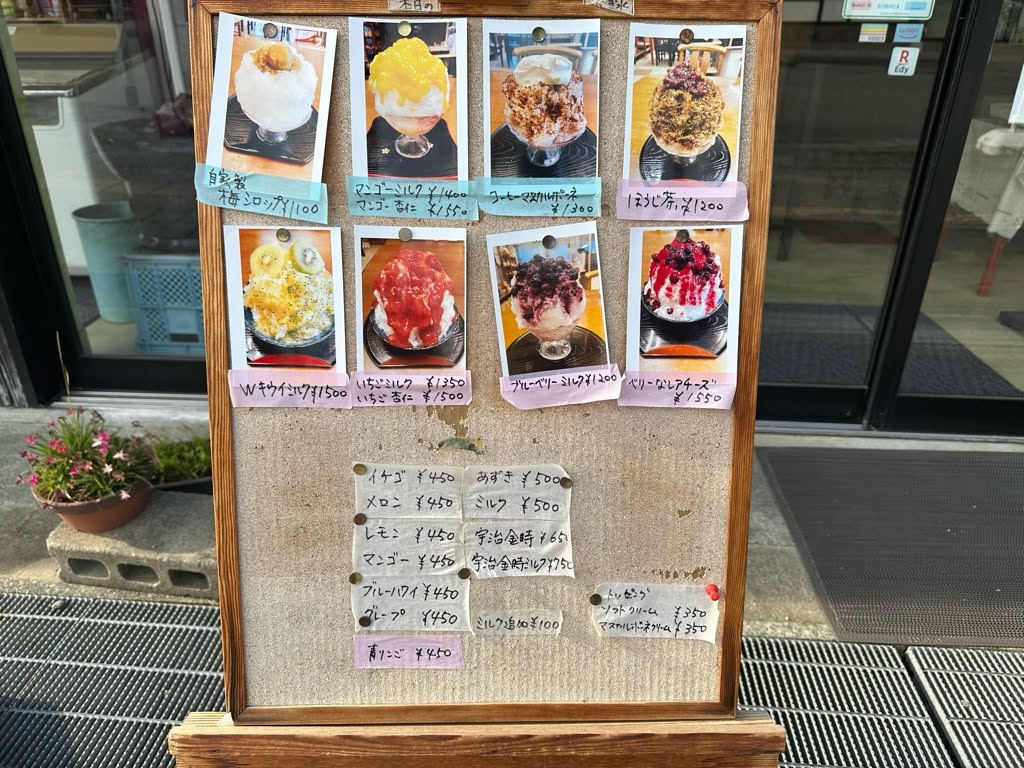 本日の
自家製
梅シロップ¥1100
マンゴーミルク ¥1400
マンゴー杏仁 ¥1550
コーヒーマスカルポーネ
¥1300
ほうじ茶 ¥1200
Wキウイミルク¥1500
いちごミルク ¥1350
いちご杏仁 ¥1500
ブルーベリーミルク¥1200
ベリーなレアチーズ
¥1550
イチゴ ¥450
メロン ¥450
レモン ¥450
マンゴー ¥450
ブルーハワイ ¥450
グレープ ¥450
青りんご ¥450
あずき ¥500
ミルク ¥500
宇治金時 ¥65
宇治金時ミルク¥750
ミルク追加¥100
トッピング
ソフトクリーム ¥350
マスカルポーネクリーム ¥350
nimoca
R
Edy